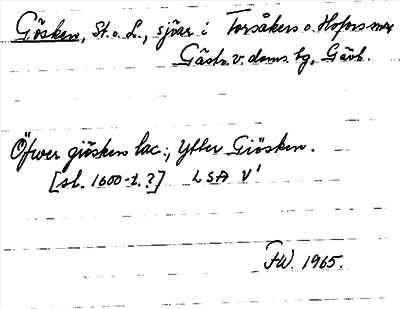 Gösken, St. o. L., sjöar i Torsåkers o. Hofors snr
Gästr. v. doms. bg, Gävl.
Öfwer giösken lac., Ytter Giösken.
[sl. 1600-t.?] LSA V¹
FW. 1965.